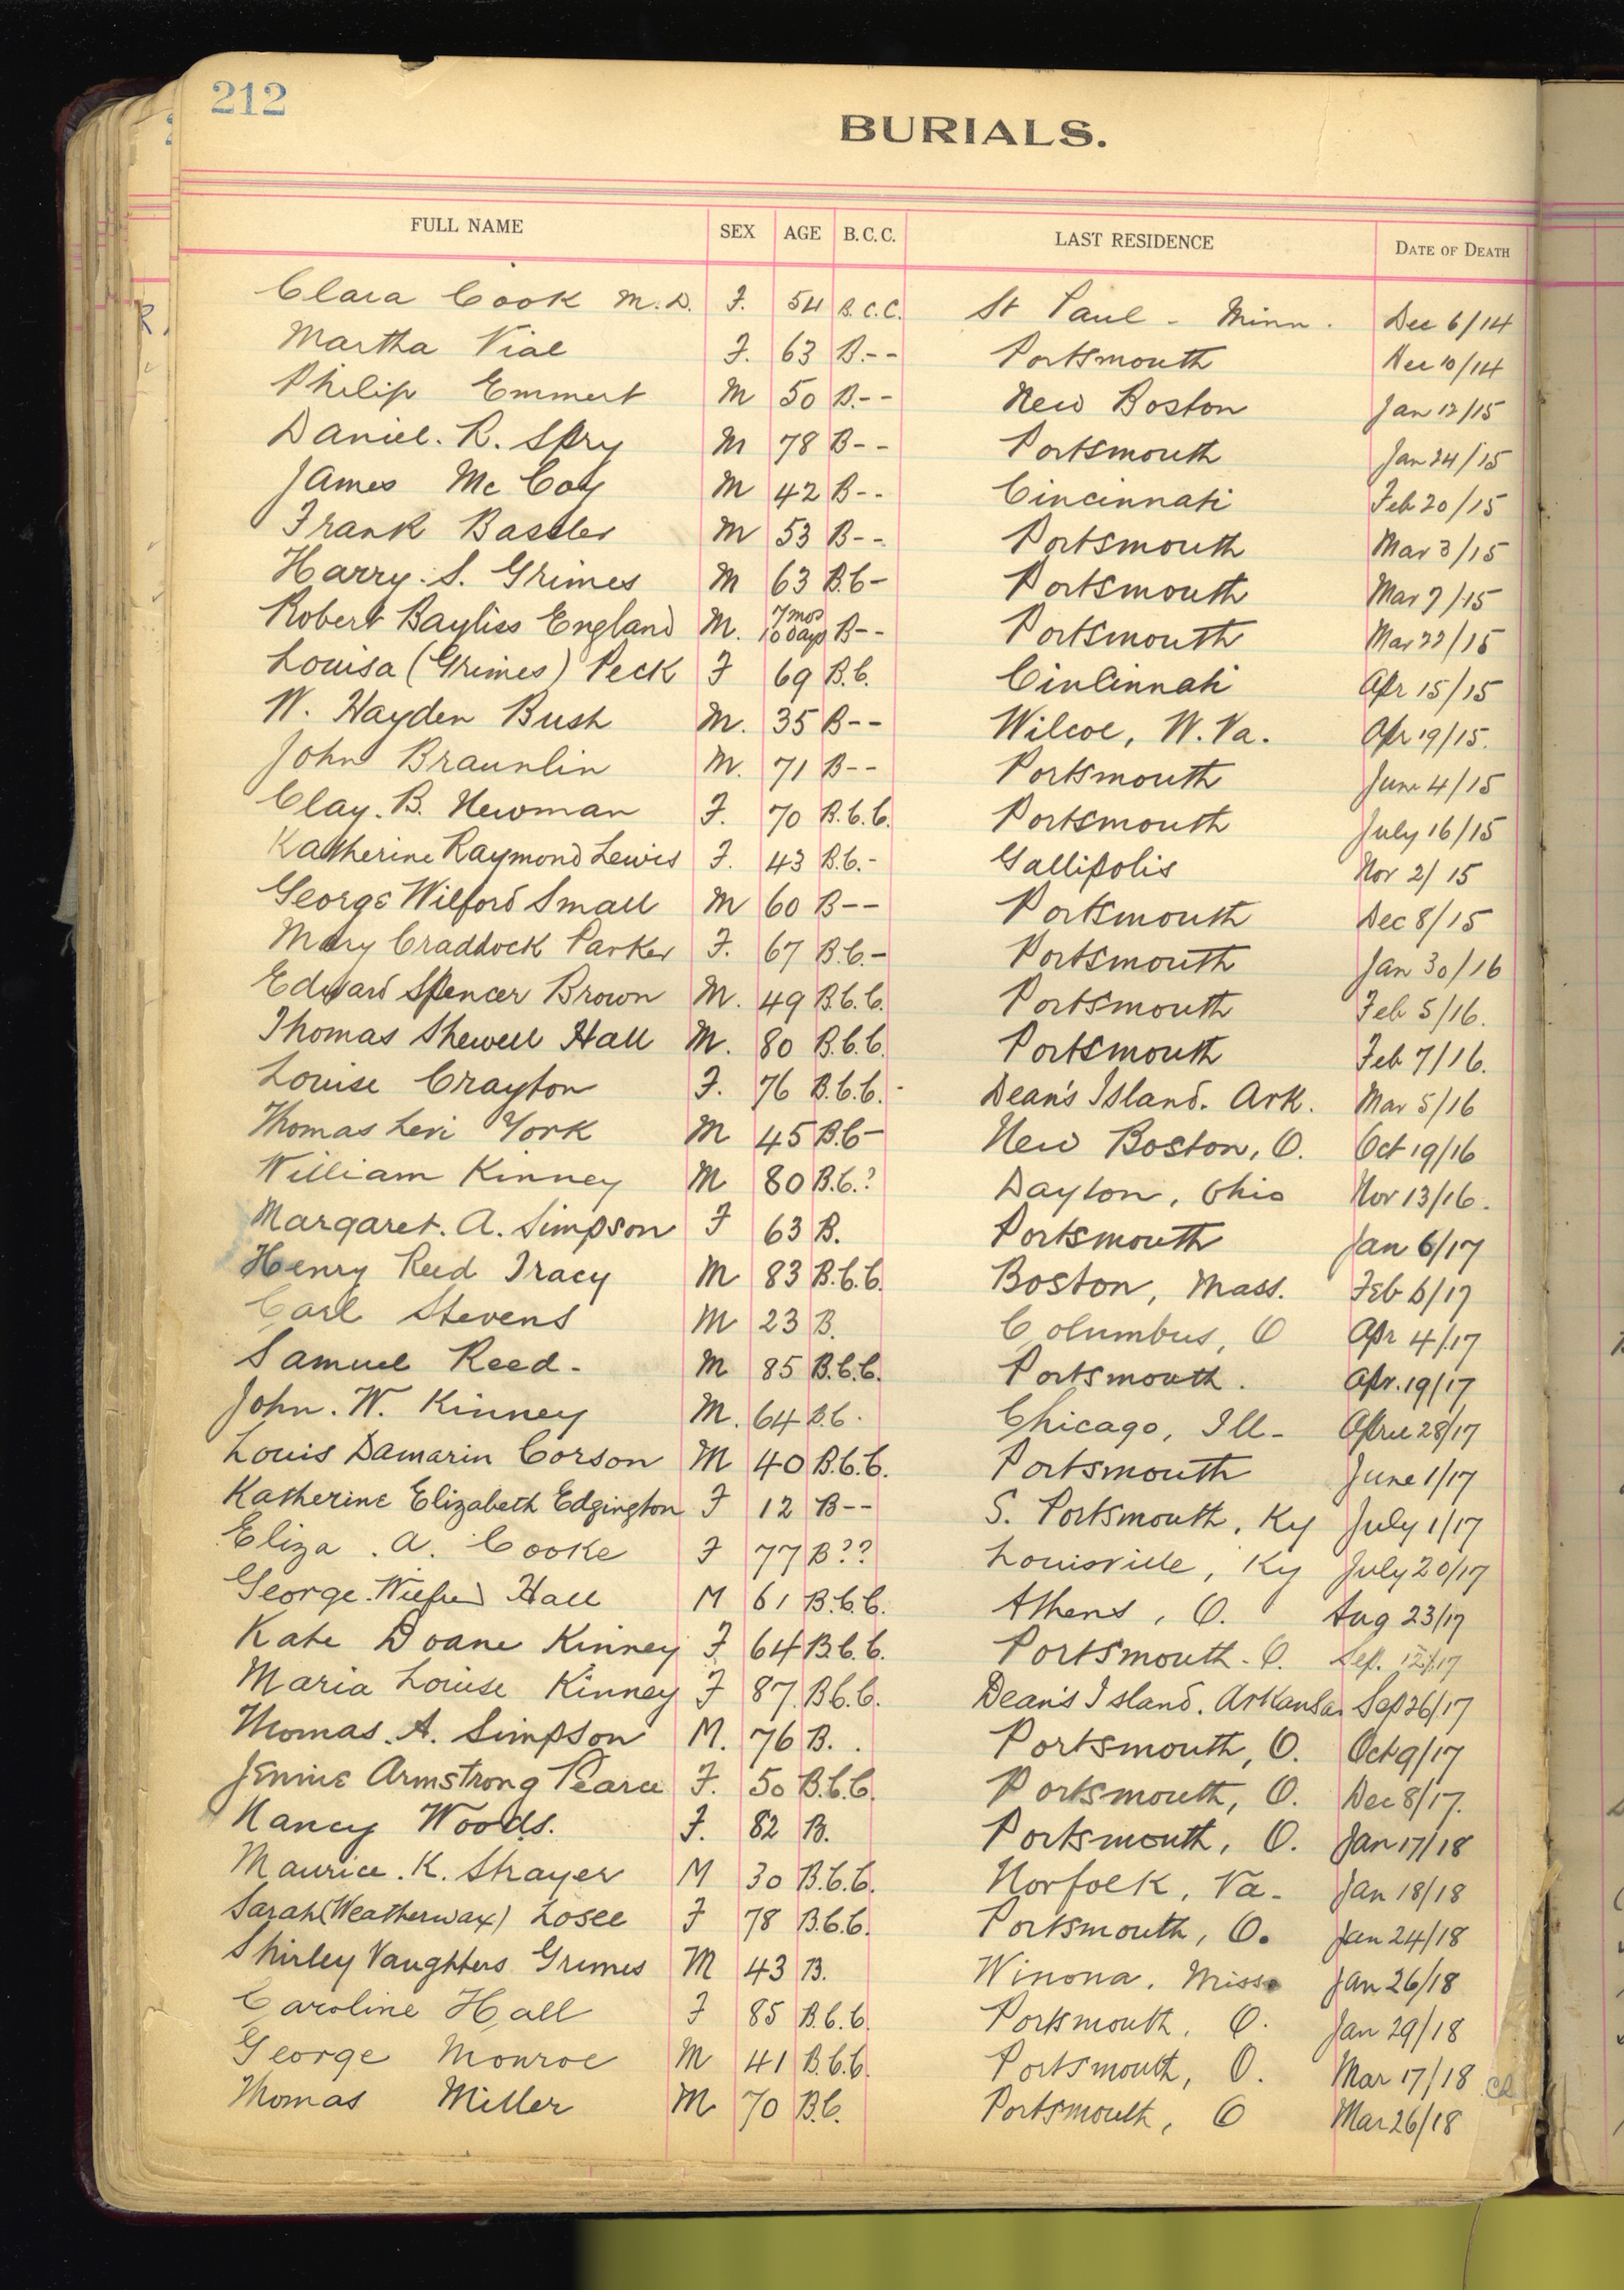 212
BURIALS.
FULL NAME SEX AGE B.C.C. LAST RESIDENCE DATE OF DEATH
Clara Cook M.D. F. 54 B.C.C. St Paul - Minn. Dec 6/14
Martha Vial F. 63 B.-- Portsmouth Dec 10/14
Philip Emmert M 50 B.-- New Boston Jan 12/15
Daniel. R. Spry M 78 B-- Portsmouth Jan 24/15
James McCoy M 42 B-- Cincinnati Feb 20/15
Frank Bassler M 53 B-- Portsmouth Mar 3/15
Harry. S. Grimes M 63 B.C- Portsmouth Mar 7/15
Robert Bayliss England M. 7 mos 10 days B-- Portsmouth Mar 22/15
Louisa (Grimes) Peck F 69 B.C. Cincinnati Apr 15/15
W. Hayden Bush M. 35 B-- Wilcoe, W. Va. Apr 19/15.
John Braunlin M. 71 B-- Portsmouth June 4/15
Clay. B. Newman F. 70 B.C.C. Portsmouth July 16/15
Katherine Raymond Lewis F. 43 B.C.- Gallipolis Nov 2/15
George Wilford Small M 60 B-- Portsmouth Dec 8/15
Mary Craddock Parker F. 67 B.C.- Portsmouth Jan 30/16
Edward Spencer Brown M. 49 B.C.C. Portsmouth Feb 5/16.
Thomas Shewell Hall M. 80 B.C.C. Portsmouth Feb 7/16.
Louise Crayton F. 76 B.C.C.- Dean's Island. Ark. Mar 5/16
Thomas Levi York M 45 B.C- New Boston, O. Oct 19/16
William Kinney M 80 B.C.? Dayton, Ohio Nov 13/16.
Margaret. A. Simpson F 63 B. Portsmouth Jan 6/17
Henry Reed Tracy M 83 B.C.C. Boston, Mass. Feb 6/17
Carl Stevens M 23 B. Columbus, O Apr 4/17
Samuel Reed- M 85 B.C.C. Portsmouth. Apr. 19/17
John. W. Kinney M. 64 B.C. Chicago, Ill- April 28/17
Louis Damarin Corson M 40 B.C.C. Portsmouth June 1/17
Katherine Elizabeth Edgington F 12 B-- S. Portsmouth, Ky July 1/17
Eliza. A. Cooke F 77 B?? Louisville, Ky July 20/17
George. Wilfred Hall M 61 B.C.C. Athens, O. Aug 23/17
Kate Doane Kinney F 64 B.C.C. Portsmouth-O. Sep. 12/17
Maria Louise Kinney F 87. B.C.C. Dean's Island. Arkansas Sep 26/17
Thomas. A. Simpson M. 76 B. Portsmouth, O. Oct 9/17
Jennie Armstrong Pearce F. 50 B.C.C. Portsmouth, O. Dec 8/17.
Nancy Woods. F. 82 B. Portsmouth, O. Jan 17/18
Maurice. K. Strayer M 30 B.C.C. Norfolk, Va- Jan 18/18
Sarah (Weatherwax) Losee F 78 B.C.C. Portsmouth, O. Jan 24/18
Shirley Vaughters Grimes M 43 B. Winona. Miss. Jan 26/18
Caroline Hall F 85 B.C.C. Portsmouth, O. Jan 29/18
George Monroe M 41 B.C.C. Portsmouth, O. Mar 17/18
Thomas Miller M 70 B.C. Portsmouth, O Mar 26/18